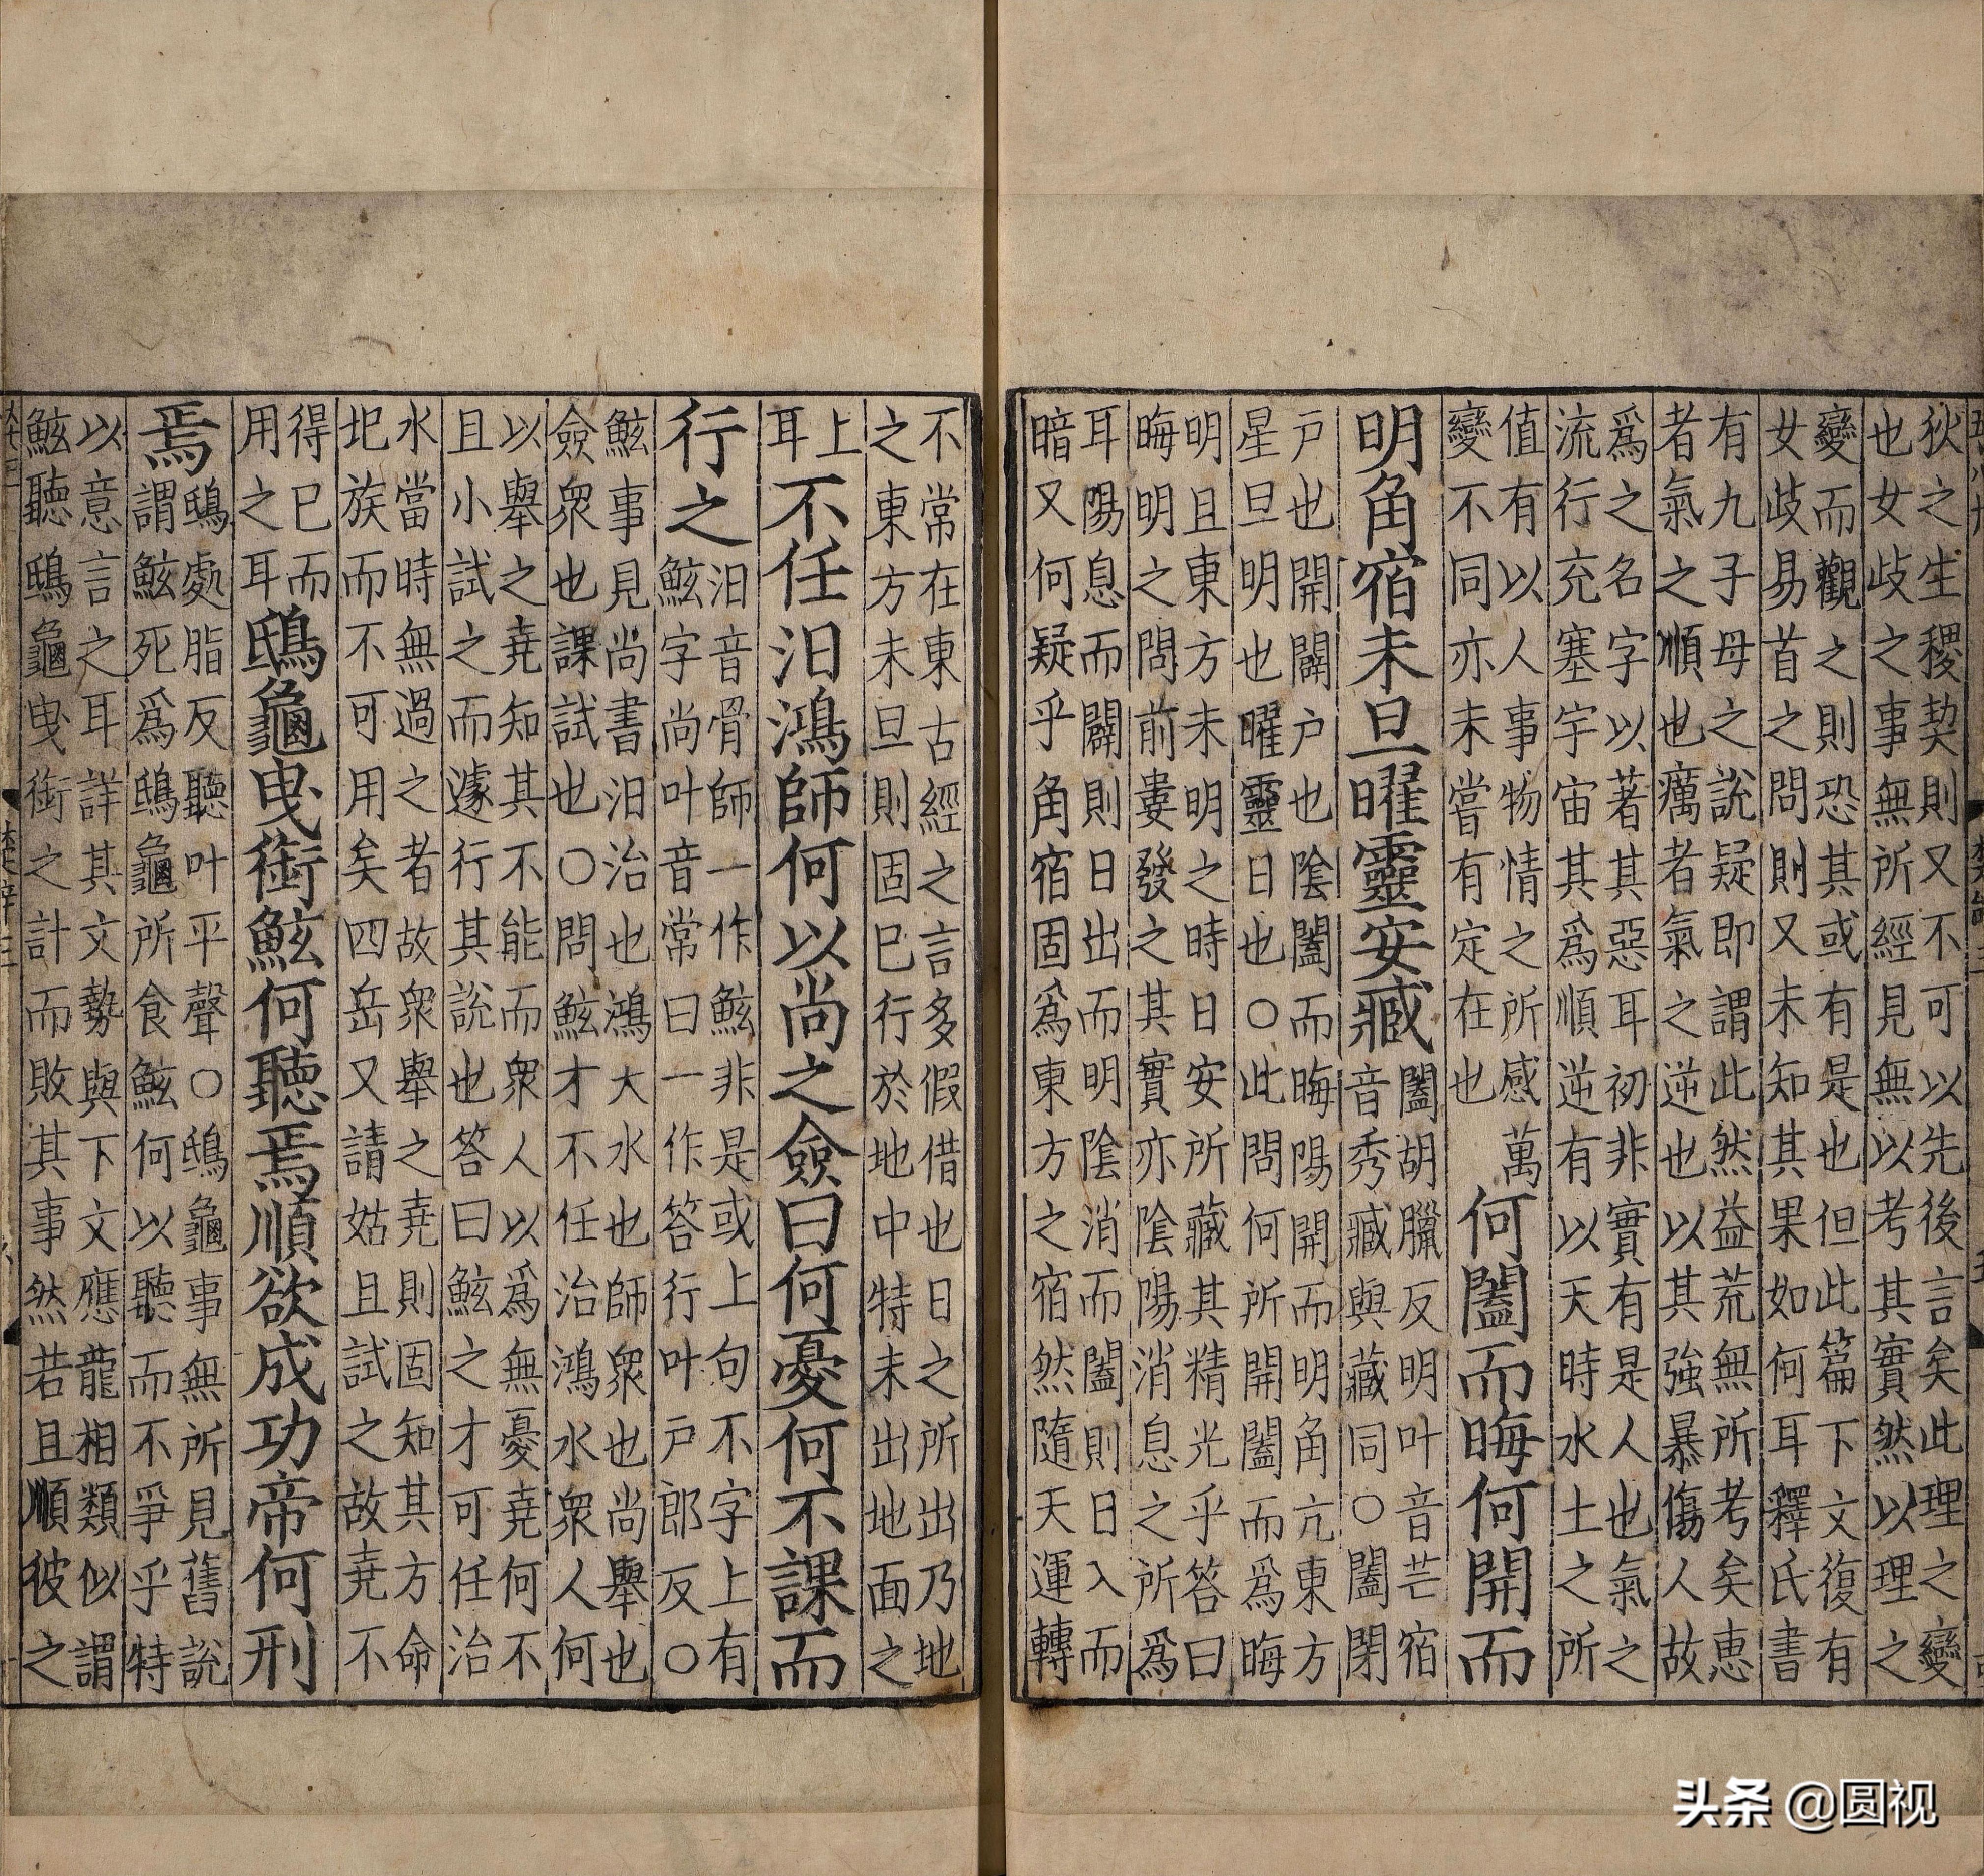 狄之生稷契則又不可以先後言矣此理之變
也女歧之事無所經見無以考其實然以理之
變而觀之則恐其或有是也但此篇下文復有
女歧易首之問則又未知其果如何耳釋氏書
有九子母之說疑即謂此然益荒無所考矣惠
者氣之順也癘者氣之逆也以其強暴傷人故
爲之名字以著其惡耳初非實有是人也氣之
流行充塞宇宙其爲順逆有以天時水土之所
值有以人事物情之所感萬
變不同亦未嘗有定在也
何闔而晦何開而
明角宿未旦曜靈安臧
闔胡臘反明叶音芒宿
音秀臧與藏同○闔閉
戶也開闢戶也陰闔而晦陽開而明角亢東方
星旦明也曜靈日也○此問何所開闔而爲晦
明且東方未明之時日安所藏其精光乎答曰
晦明之問前婁發之其實亦陰陽消息之所爲
耳陽息而闢則日出而明陰消而闔則日入而
暗又何疑乎角宿固爲東方之宿然隨天運轉
不常在東古經之言多假借也日之所出乃地
之東方未旦則固已行於地中特未出地面之
上
耳
不任汩鴻師何以尚之僉曰何憂何不課而
行之
汩音骨師一作鮌非是或上句不字上有
鮌字尚叶音常曰一作答行叶戶郎反○
鮌事見尚書汩治也鴻大水也師衆也尚舉也
僉衆也課試也○問鮌才不任治鴻水衆人何
以舉之堯知其不能而衆人以爲無憂堯何不
且小試之而遽行其說也答曰鮌之才可任治
水當時無過之者故衆舉之堯則固知其方命
圯族而不可用矣四岳又請姑且試之故堯不
得已而
用之耳
鴟龜曳銜鮌何聽焉順欲成功帝何刑
焉
鴟處脂反聽叶平聲○鴟龜事無所見舊說
謂鮌死爲鴟龜所食鮌何以聽而不爭乎特
以意言之耳詳其文勢與下文應龍相類似謂
鮌聽鴟龜曳銜之計而敗其事然若且順彼之
头条 @圆视